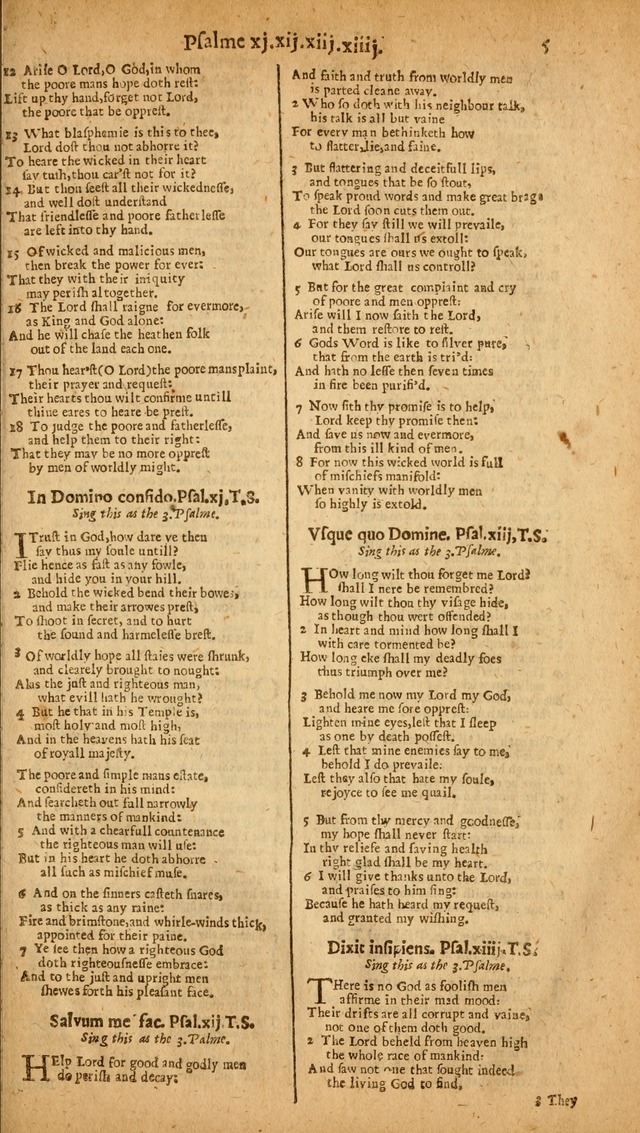 Psalme xj.xij.xiij.xiiij. 5
12 Arise O Lord,O God,in whom
the poore mans hope doth rest:
Lift up thy hand,forget not Lord,
the poore that be opprest.
13 What blasphemie is this to thee,
Lord dost thou not abhorre it?
To heare the wicked in their heart
say tush,thou car'st not for it?
14. But thou seest all their wickednesse,
and well dost understand
That friendlesse and poore fatherlesse
are left into thy hand.
15 Of wicked and malicious men,
then break the power for ever:
That they with their iniquity
may perish altogether.
16 The Lord shall raigne for evermore,
as King and God alone:
And he will chase the heathen folk
out of the land each one.
17 Thou hear'st(O Lord)the poore mans plaint,
their prayer and request:
Their hearts thou wilt confirme untill
thine eares to heare be prest.
18 To judge the poore and fatherlesse,
and help them to their right:
That they may be no more opprest
by men of worldly might.
In Domino confido.Psal.xj,T.S.
Sing this as the 3.Psalme.
I Trust in God,how dare ye then
say thus my soule untill?
Flie hence as fast as any fowle,
and hide you in your hill.
2 Behold the wicked bend their bowes,
and make their arrowes prest,
To shoot in secret, and to hurt
the sound and harmelesse brest.
3 Of worldly hope all staies were shrunk,
and clearely brought to nought:
Alas the just and righteous man,
what evill hath he wrought?
4 But he that in his Temple is,
most holy and most high,
And in the heavens hath his seat
of royall majesty.
The poore and simple mans estate,
considereth in his mind:
And searcheth out full narrowly
the manners of mankind:
5 And with a chearfull countenance
the righteous man will use:
But in his heart he doth abhorre
all such as mischief muse.
6 And on the sinners casteth snares,
as thick as any raine:
Fire and brimstone,and whirle-winds thick,
appointed for their paine.
7 Ye see then how a righteous God
doth righteousnesse embrace:
And to the just and upright men
shewes forth his pleasant face.
Salvum me fac. Psal.xij.T.S.
Sing this as the 3. Psalme.
HElp Lord for good and godly men
do perish and decay:
And faith and truth from worldly men
is parted cleane away.
2 Who so doth with his neighbour talk,
his talk is all but vaine
For every man bethinketh how
to flatter,lie,and faine.
3 But flattering and deceitfull lips,
and tongues that be so stout,
To speak proud words and make great brags
the Lord soon cuts them out.
4 For they say still we will prevaile,
our tongues shall us extoll:
Our tongues are ours we ought to speak,
what Lord shall us controll?
5 But for the great complaint and cry
of poore and men opprest:
Arise will I now saith the Lord,
and them restore to rest.
6 Gods Word is like to silver pure,
that from the earth is tri'd:
And hath no lesse then seven times
in fire been purifi'd.
7 Now sith thy promise is to help,
Lord keep thy promise then:
And save us now and evermore,
from this ill kind of men.
8 For now this wicked world is full
of mischiefs manifold:
When vanity with worldly men
so highly is extold.
Vsque quo Domine. Psal.xiij,T.S.
Sing this as the 3.Psalme.
HOw long wilt thou forget me Lord?
shall I nere be remembred?
How long wilt thou thy visage hide,
as though thou wert offended?
2 In heart and mind how shall I
with care tormented be?
How long eke shall my deadly foes
thus triumph over me?
3 Behold me now my Lord my God,
and heare me sore opprest:
Lighten mine eyes,lest that I sleep
as one by death possest.
4 Lest that mine enemies say to me,
behold I do prevaile:
Lest they also that hate my soule,
rejoyce to see me quail.
5 But from thy mercy and goodnesse,
my hope shall never start:
In thy reliefe and saving health
right glad shall be my heart.
6 I will give thanks unto the Lord,
and praises to him sing:
Because he hath heard my request,
and granted my wishing.
Dixit insipiens. Psal.xiiij.T.S.
Sing this as the 3.Psalme.
THere is no God as foolish men
affirme in their mad mood:
Their drifts are all corrupt and vaine,
not one of them doth good.
2 The Lord beheld from heaven high
the whole race of mankind:
And saw not one that sought indeed
the living God to find.
3 They